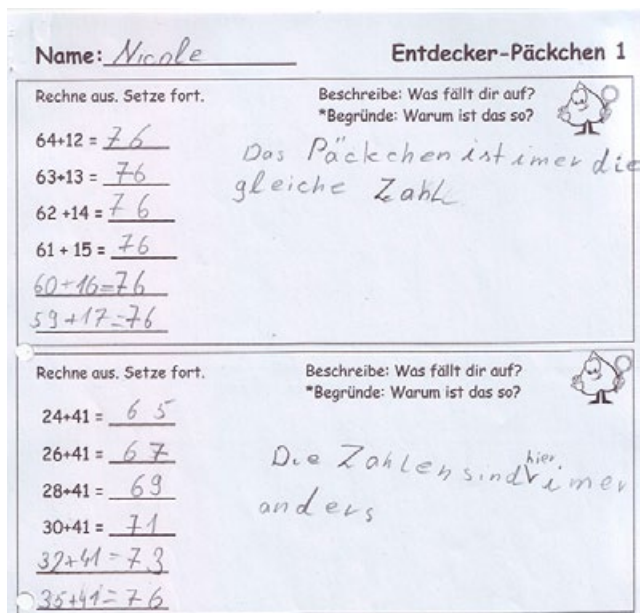 Name: Nicole Entdecker-Päckchen 1
Rechne aus. Setze fort.
Beschreibe: Was fällt dir auf?
*Begründe: Warum ist das so?
64+12 = 76
63+13 = 76
62 +14 = 76
61 + 15 = 76
60+16=76
59+17=76
Das Päckchen ist imer die
gleiche Zahl
Rechne aus. Setze fort.
Beschreibe: Was fällt dir auf?
*Begründe: Warum ist das so?
24+41 = 65
26+41 = 67
28+41 = 69
30+41 = 71
32+41=73
35+41=76
Die Zahlen sind hier imer
anders